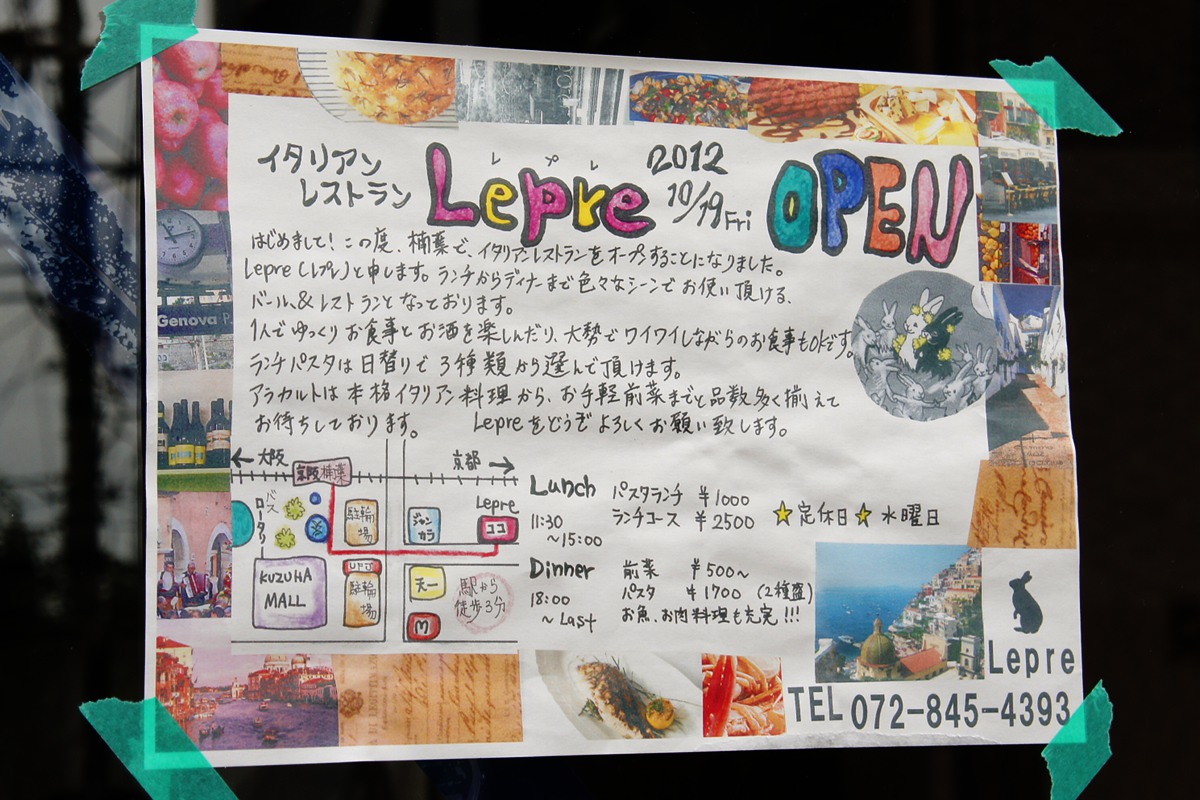 イタリアン
レストラン
レプレ
Lepre
2012
10/19 Fri
OPEN
はじめまして！この度、楠葉で、イタリアンレストランをオープすることになりました。
Lepre（レプレ）と申します。ランチからディナーまで色々なシーンでお使い頂ける、
バール&レストランとなっております。
1人でゆっくりお食事とお酒を楽しんだり、大勢でワイワイしながらのお食事もOKです。
ランチパスタは日替りで3種類から選んで頂けます。
アラカルトは本格イタリアン料理から、お手軽前菜までと品数多く揃えて
お待ちしております。 Lepreをどうぞよろしくお願い致します。
← 大阪
京阪楠葉
京都 →
バス
ロータリー
駐輪場
ジャンカラ
Lepre
ココ
KUZUHA
MALL
UFJ
駐輪場
天一
M
駅から
徒歩3分
Lunch
11:30
～15:00
パスタランチ ￥1000
ランチコース ￥2500
☆定休日☆水曜日
Dinner
18:00
～Last
前菜 ￥500～
パスタ ￥1700（2種盛）
お魚、お肉料理も充実!!!
Genova P
Lepre
TEL 072-845-4393